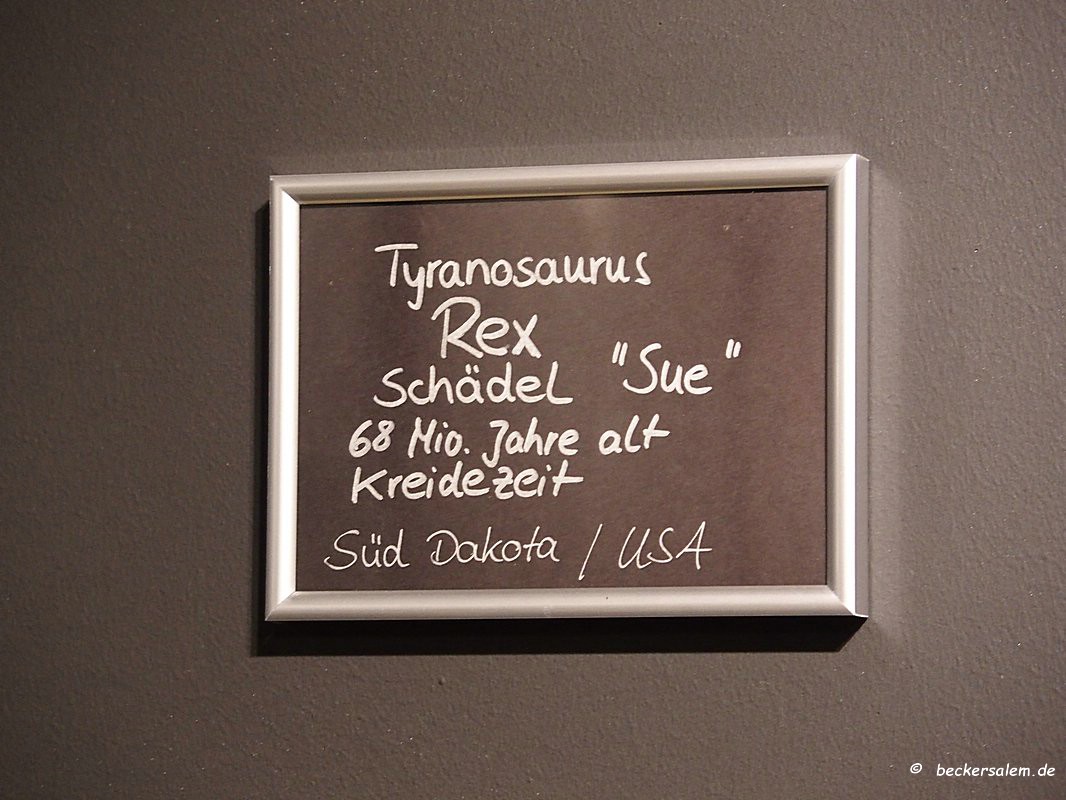 Tyranosaurus
Rex
Schädel "Sue"
68 Mio. Jahre alt
Kreidezeit
Süd Dakota / USA
© beckersalem.de